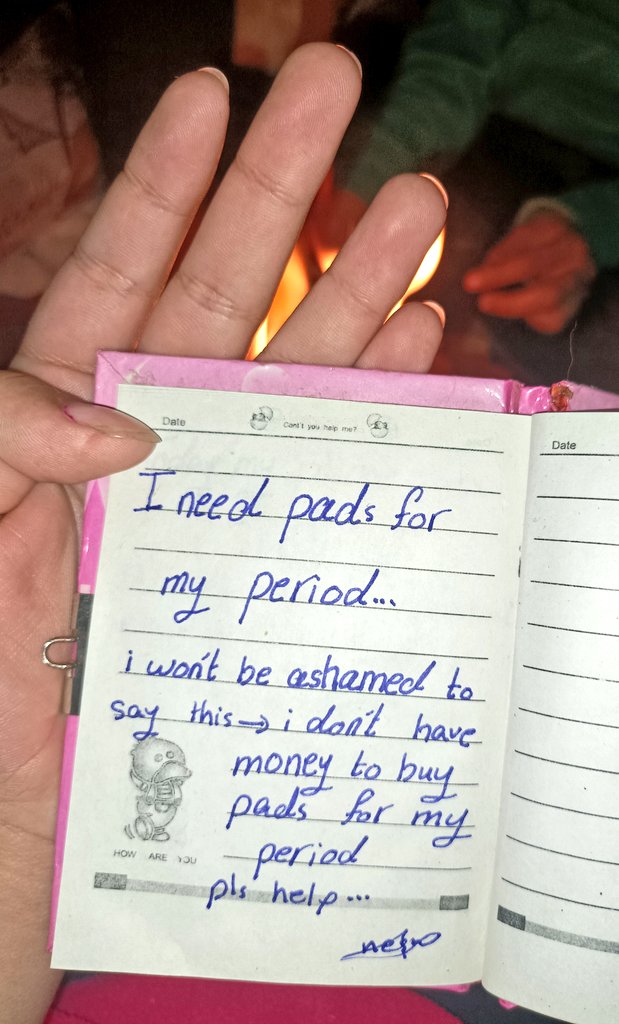 Date Can't you help me?
I need pads for
my period...
i won't be ashamed to
say this → i don't have
money to buy
pads for my
HOW ARE YOU
period
pls help...
Date